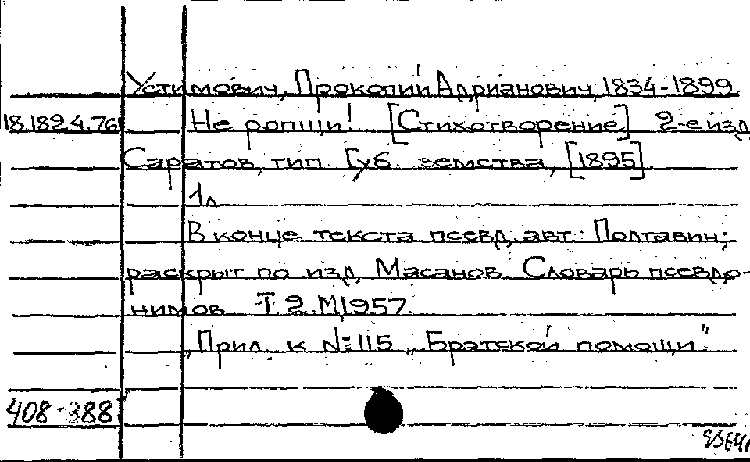 Устимович, Прокопий Адрианович, 1834-1899
18.182.4.76 Не ропщи! [Стихотворение.] 2-е изд.
Саратов, тип. Губ. земства, [1895]
1 л.
В конце текста псевд. авт.: Полтавин;
раскрыт по изд. Масанов. Словарь псевдо-
нимов. Т. 2. М, 1957.
„Прил. к №115 „Братской помощи".
408-388